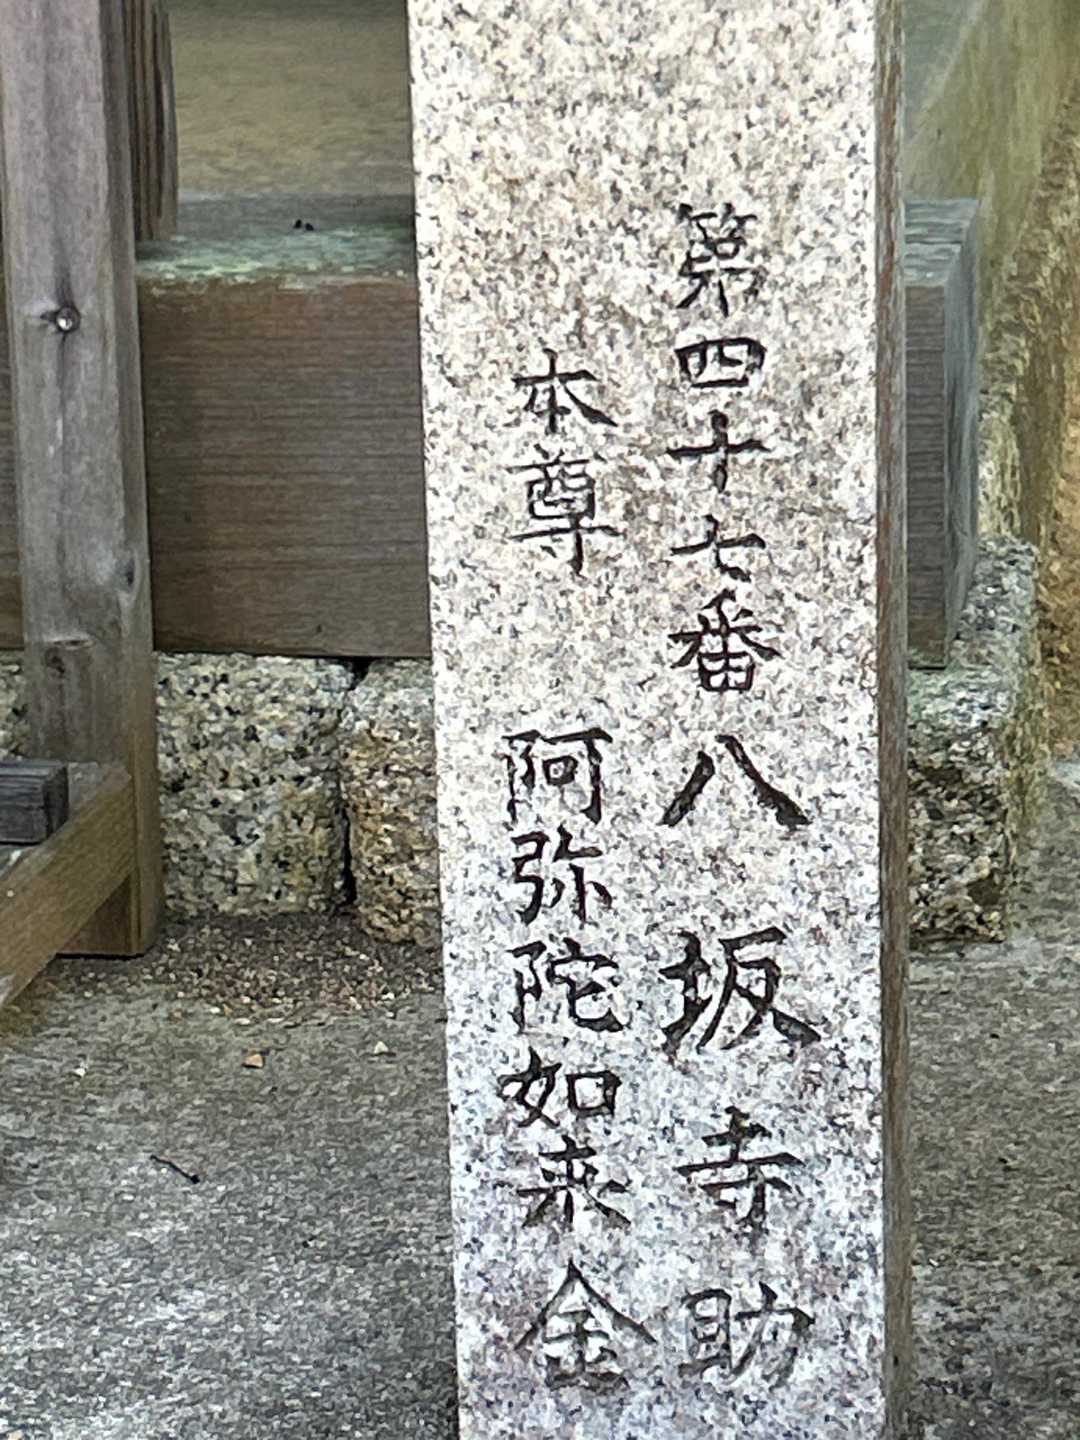 第四十七番八坂寺助
本尊 阿弥陀如来金